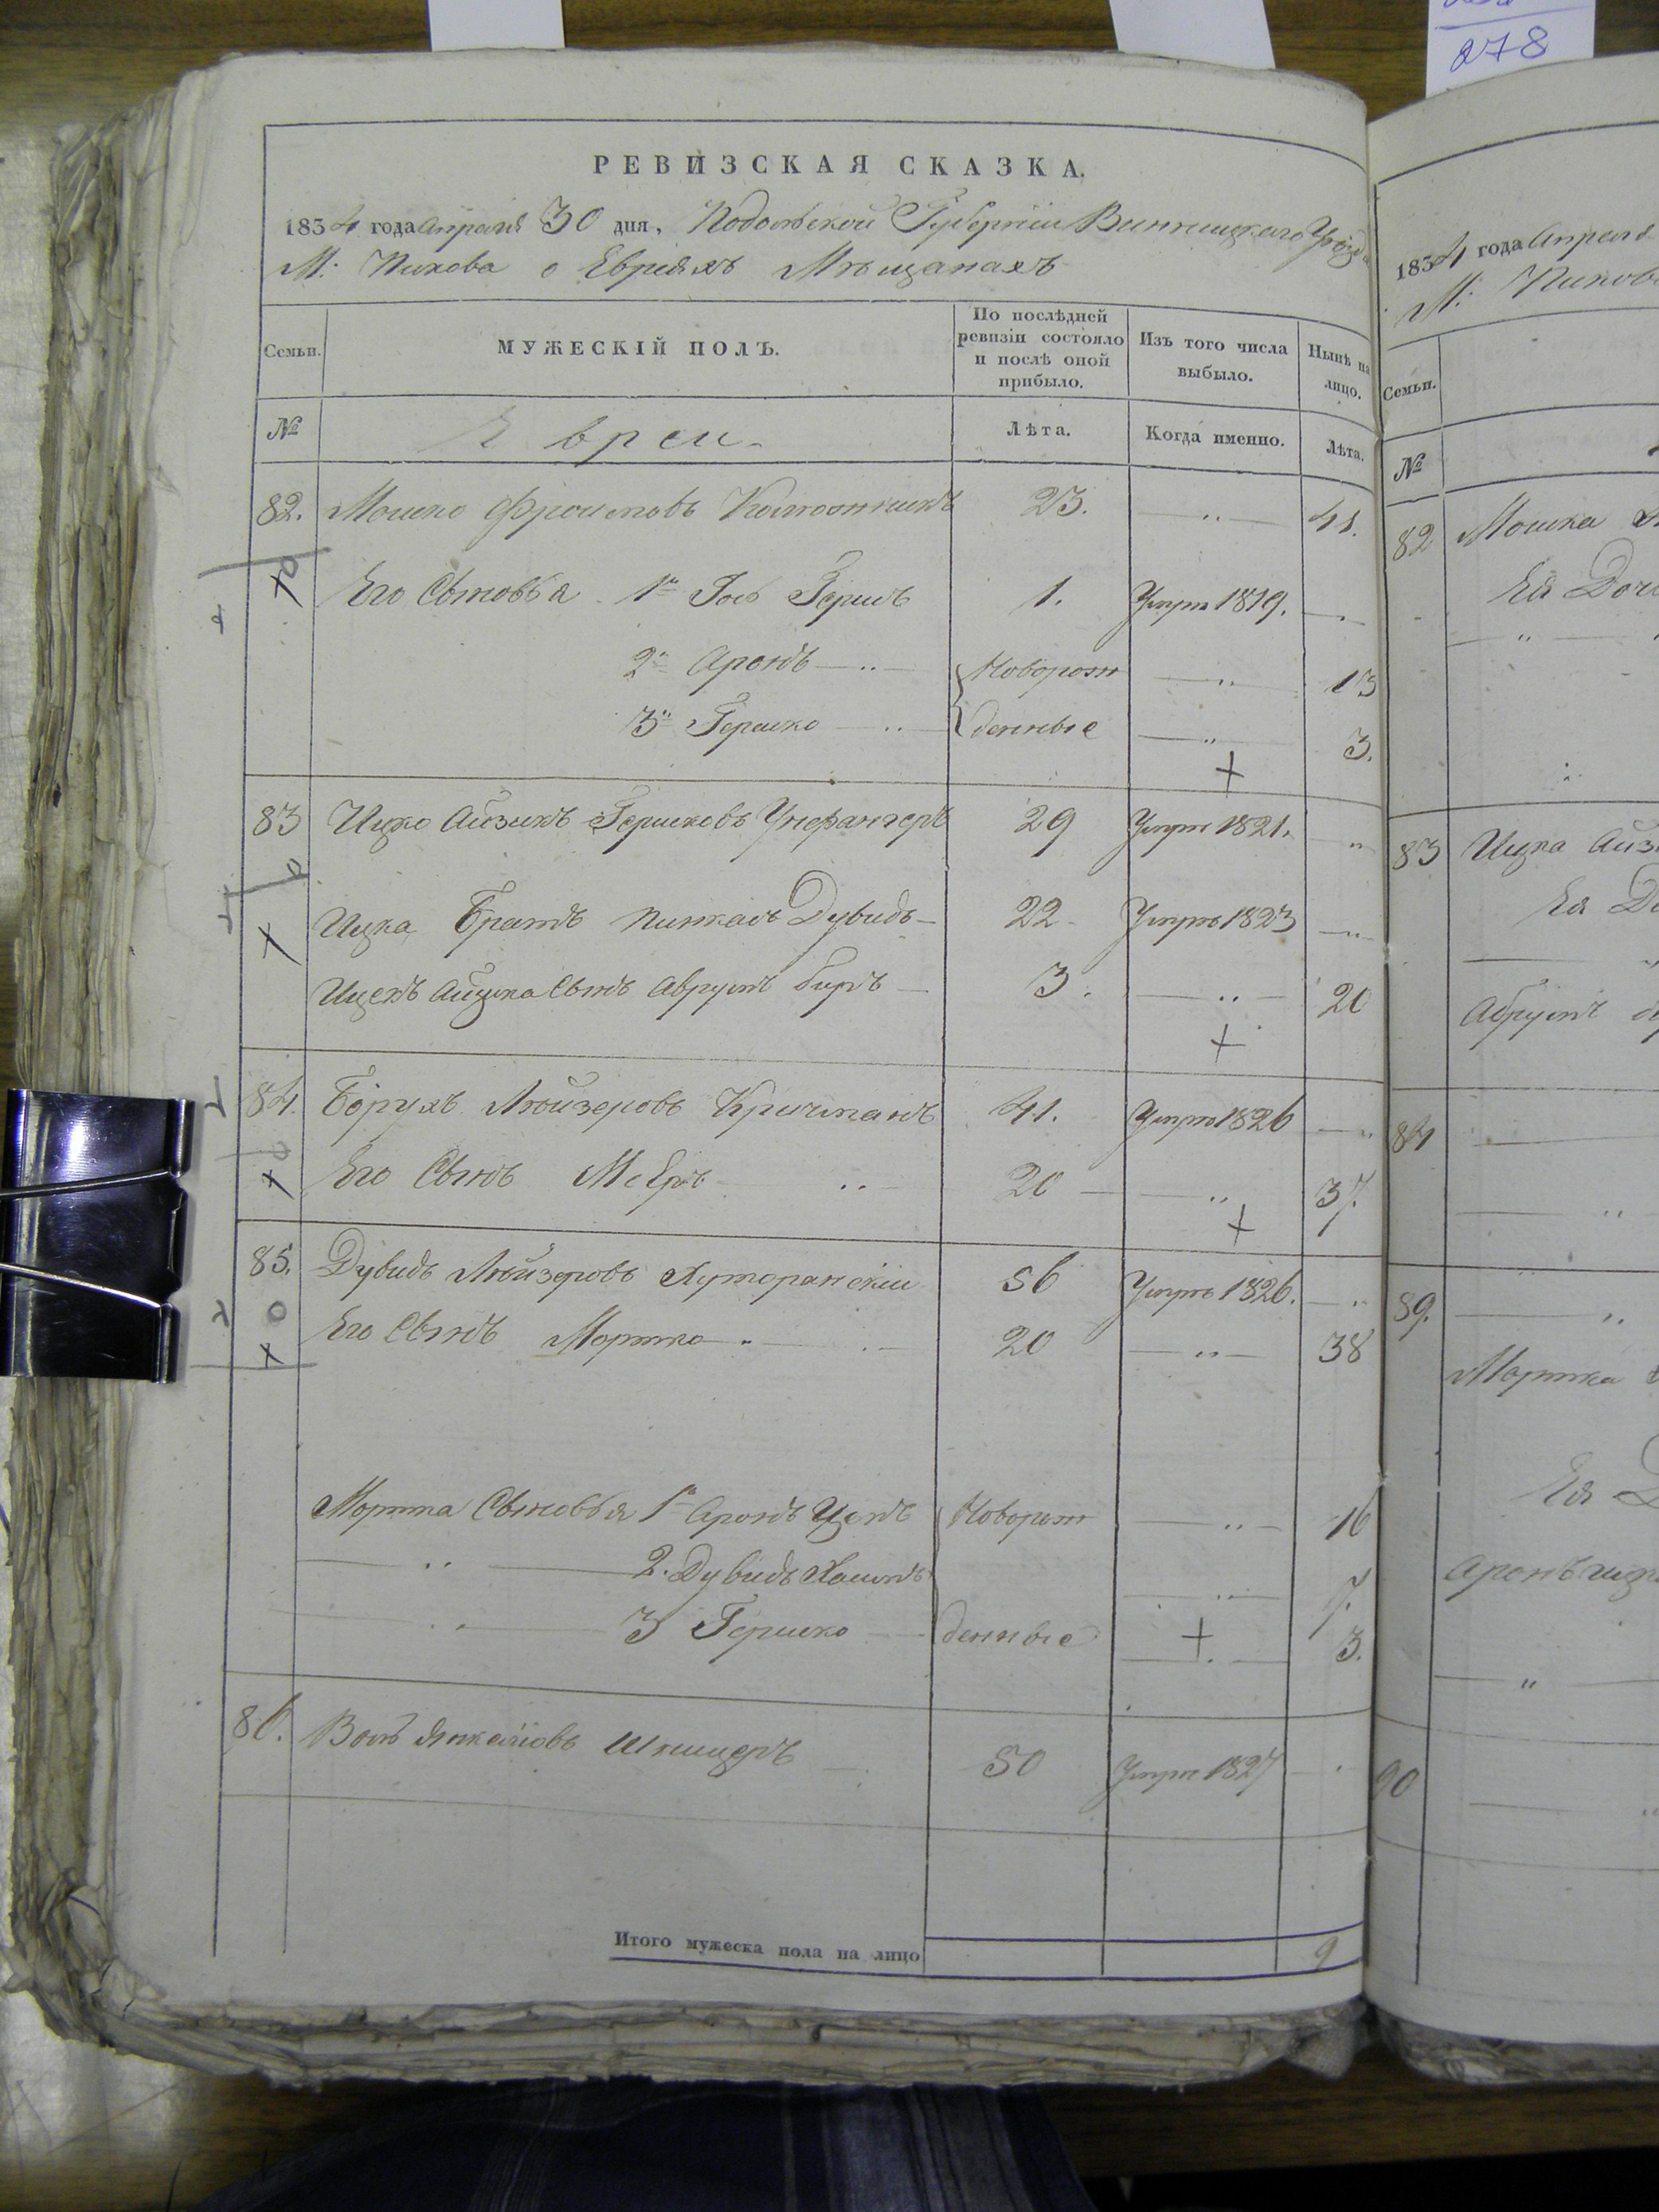 278
РЕВИЗСКАЯ СКАЗКА.
1834 года Апреля 30 дня, Подольской Губернии Винницкаго Уезда
М: Пикова о Евреяхъ Мещанахъ
Семьи.
МУЖЕСКІЙ ПОЛЪ.
По послѣдней ревизіи состояло и послѣ оной прибыло.
Изъ того числа выбыло.
Нынѣ на лицо.
№
Евреи
Лѣта.
Когда именно.
Лѣта.
82. Мошко Фроимовъ 23. 41.
Его Сыновья 1й Гершъ 1. Умре 1819.
2й Аронъ Новорож 13
3й Гершко денные 3.
83 Ицко Айзикъ Гершковъ 29 Умре 1821.
Ицка Братъ Пинкасъ Дувидъ 22 Умре 1823
Сынъ Аврумъ Беръ 3. 20
84. Борухъ Лейзеровъ Кричманъ 41. Умре 1826
Его Сынъ Мееръ 20 37.
85. Дувидъ Лейзеровъ Хуторанскій 56 Умре 1826.
Его Сынъ Мортко 20 38
Мортка Сыновья 1й Аронъ Новорож 16
2. Дувидъ Хаимъ 7.
3 Гершко денные 3.
86. Янкелiовъ Шницеръ 50 Умре 1827
Итого мужеска пола на лицо 9
1834 года Апреля
М: Пиков
Семьи.
№
82 Мошка
Ея Доч
83 Ицка Айз
Ея Д
Аврумъ
84
89.
Мортка
Ея Д
Аронъ
90